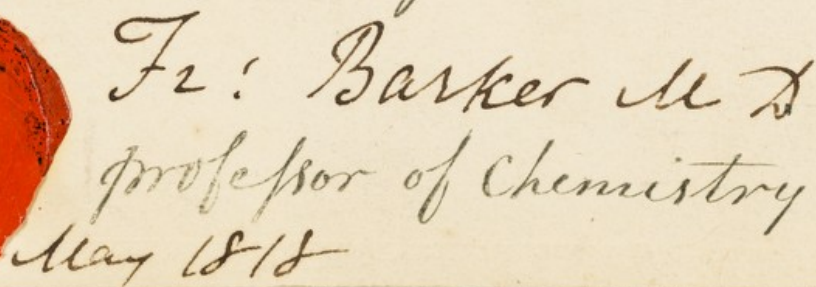 Fr: Barker M D
profeſsor of Chemistry
May 1818